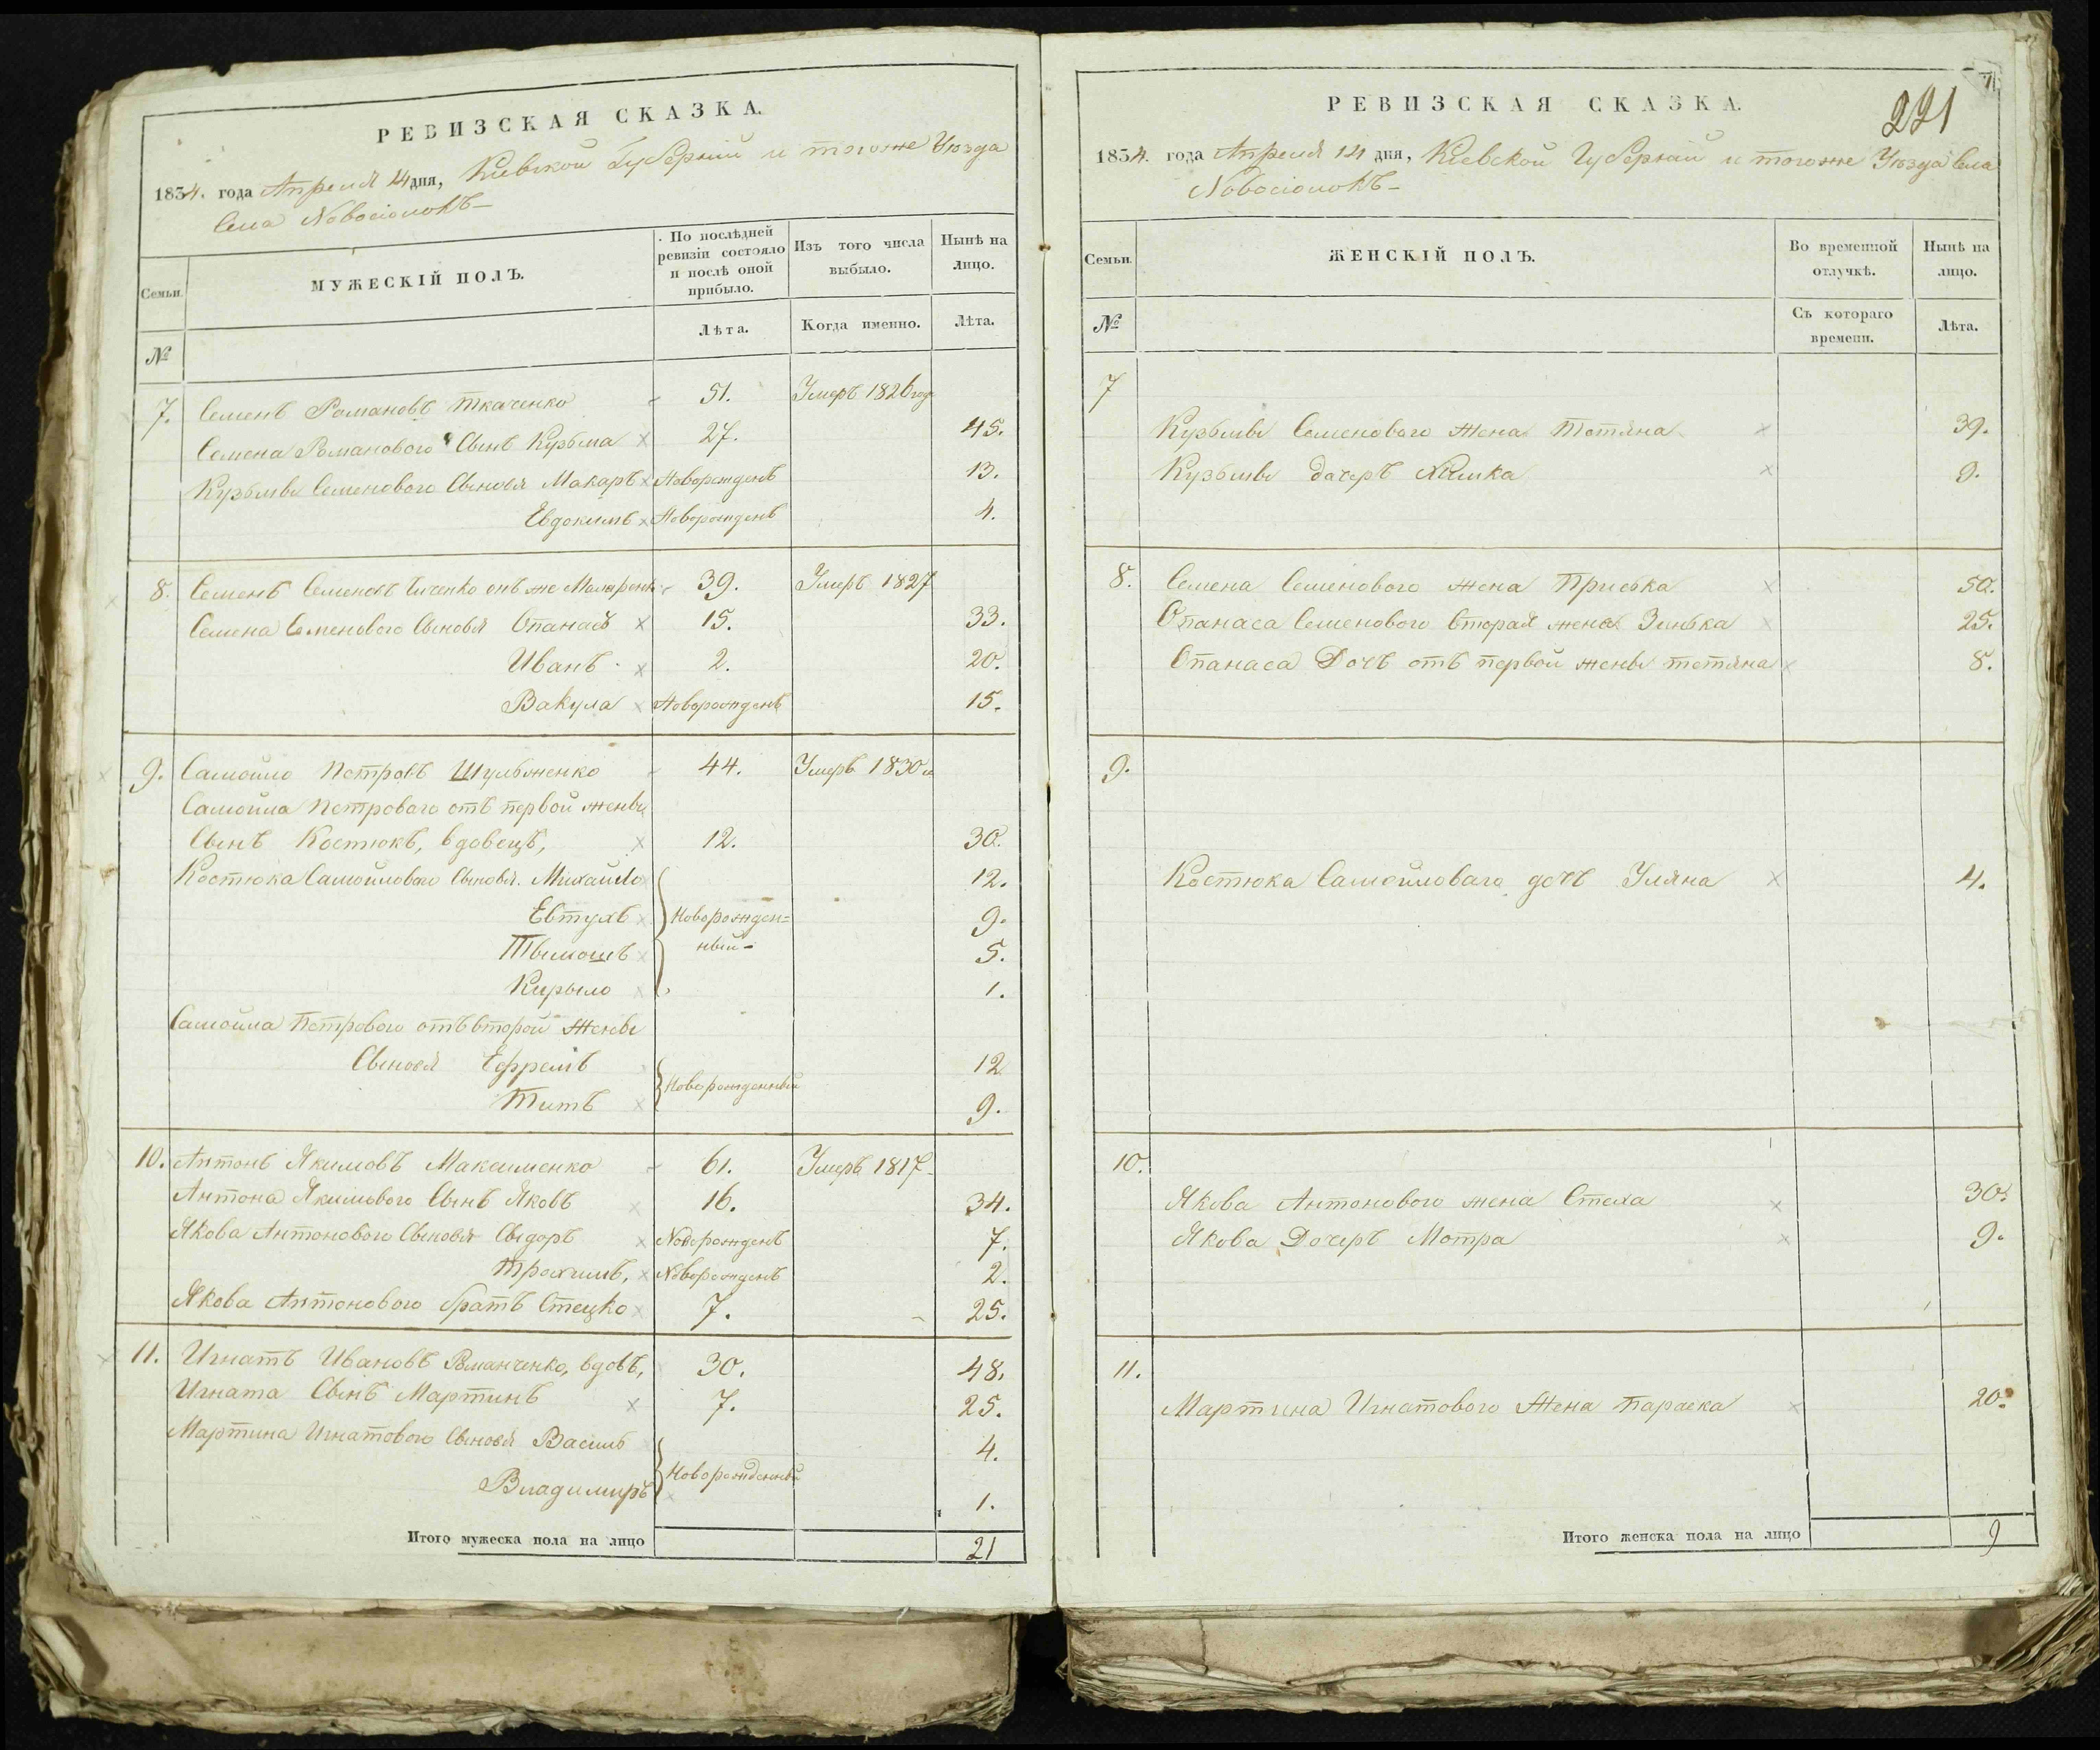 РЕВИЗСКАЯ СКАЗКА.
1834. года Апреля 14 дня, Киевской Губернии и тогоже Уезда
Села Новосіолокъ
Семьи.
МУЖЕСКІЙ ПОЛЪ.
По послѣдней ревизіи состояло и послѣ оной прибыло.
Изъ того числа выбыло.
Нынѣ на лицо.
№
Лѣта.
Когда именно.
Лѣта.
7. Семенъ Романовъ Ткаченко 51. Умеръ 1826 года
Семена Романового Сынъ Кузьма 27. 45.
Кузьмы Семенового Сыновья Макаръ Новорожденъ 13.
Евдокимъ Новорожденъ 4.
8. Семенъ Семеновъ онъ же 39. Умеръ 1827
Семена Семенового Сыновья Опанасъ 15. 33.
Иванъ 2. 20.
Вакула Новорожденъ 15.
9. Самойло Петровъ Шульженко 44. Умеръ 1830
Самойла Петрового отъ первой жены
Сынъ Костюкъ, вдовецъ, 12. 30.
Костюка Самойлового Сыновья. Михайло 12.
Евтухъ Новорожден= 9.
Тымошъ ный 5.
Кирыло 1.
Самойла Петрового отъ второй Жены
Сыновья Ефремъ 12
Титъ Новорожденный 9.
10. Антонъ Якимовъ Максименко 61. Умеръ 1817
Антона Якимового Сынъ Яковъ 16. 34.
Якова Антонового Сыновья Сыдоръ Новорожденъ 7.
Трохимъ, Новорожденъ 2.
Якова Антонового братъ Стецко 7. 25.
11. Игнатъ Ивановъ Романченко, вдовъ, 30. 48.
Игната Сынъ Мартинъ 7. 25.
Мартина Игнатового Сыновья Василь 4.
Владимиръ Новорожденный 1.
Итого мужеска пола на лицо 21
221
РЕВИЗСКАЯ СКАЗКА.
1834. года Апреля 14 дня, Киевской Губернии и тогоже Уезда Села
Новосіолокъ
Семьи.
ЖЕНСКІЙ ПОЛЪ.
Во временной отлучкѣ.
Нынѣ на лицо.
№
Съ котораго времени.
Лѣта.
7
Кузьмы Семенового Жена Тотяна 39.
Кузьмы дочеръ Химка 9.
8. Семена Семенового жена Приська 50.
Опанаса Семенового вторая жена Зинька 25.
Опанаса Дочъ отъ первой жены тотяна 8.
9.
Костюка Самойлового дочъ Уляна 4.
10.
Якова Антонового жена Стеха 30.
Якова Дочеръ Мотра 9.
11.
Мартина Игнатового Жена Параска 20.
Итого женска пола на лицо 9